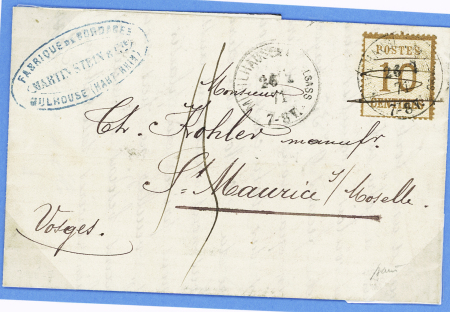 FABRIQUE DE BORDAGES
MARTIN STEIN
MULHOUSE (HAUT-RHIN)
MÜLHAUSEN
26 1
71
7-8V.
POSTES
10
CENTIMES
7-8V.
Monsieur
Ch. Kohler manufr.
St Maurice s/Moselle.
Vosges.